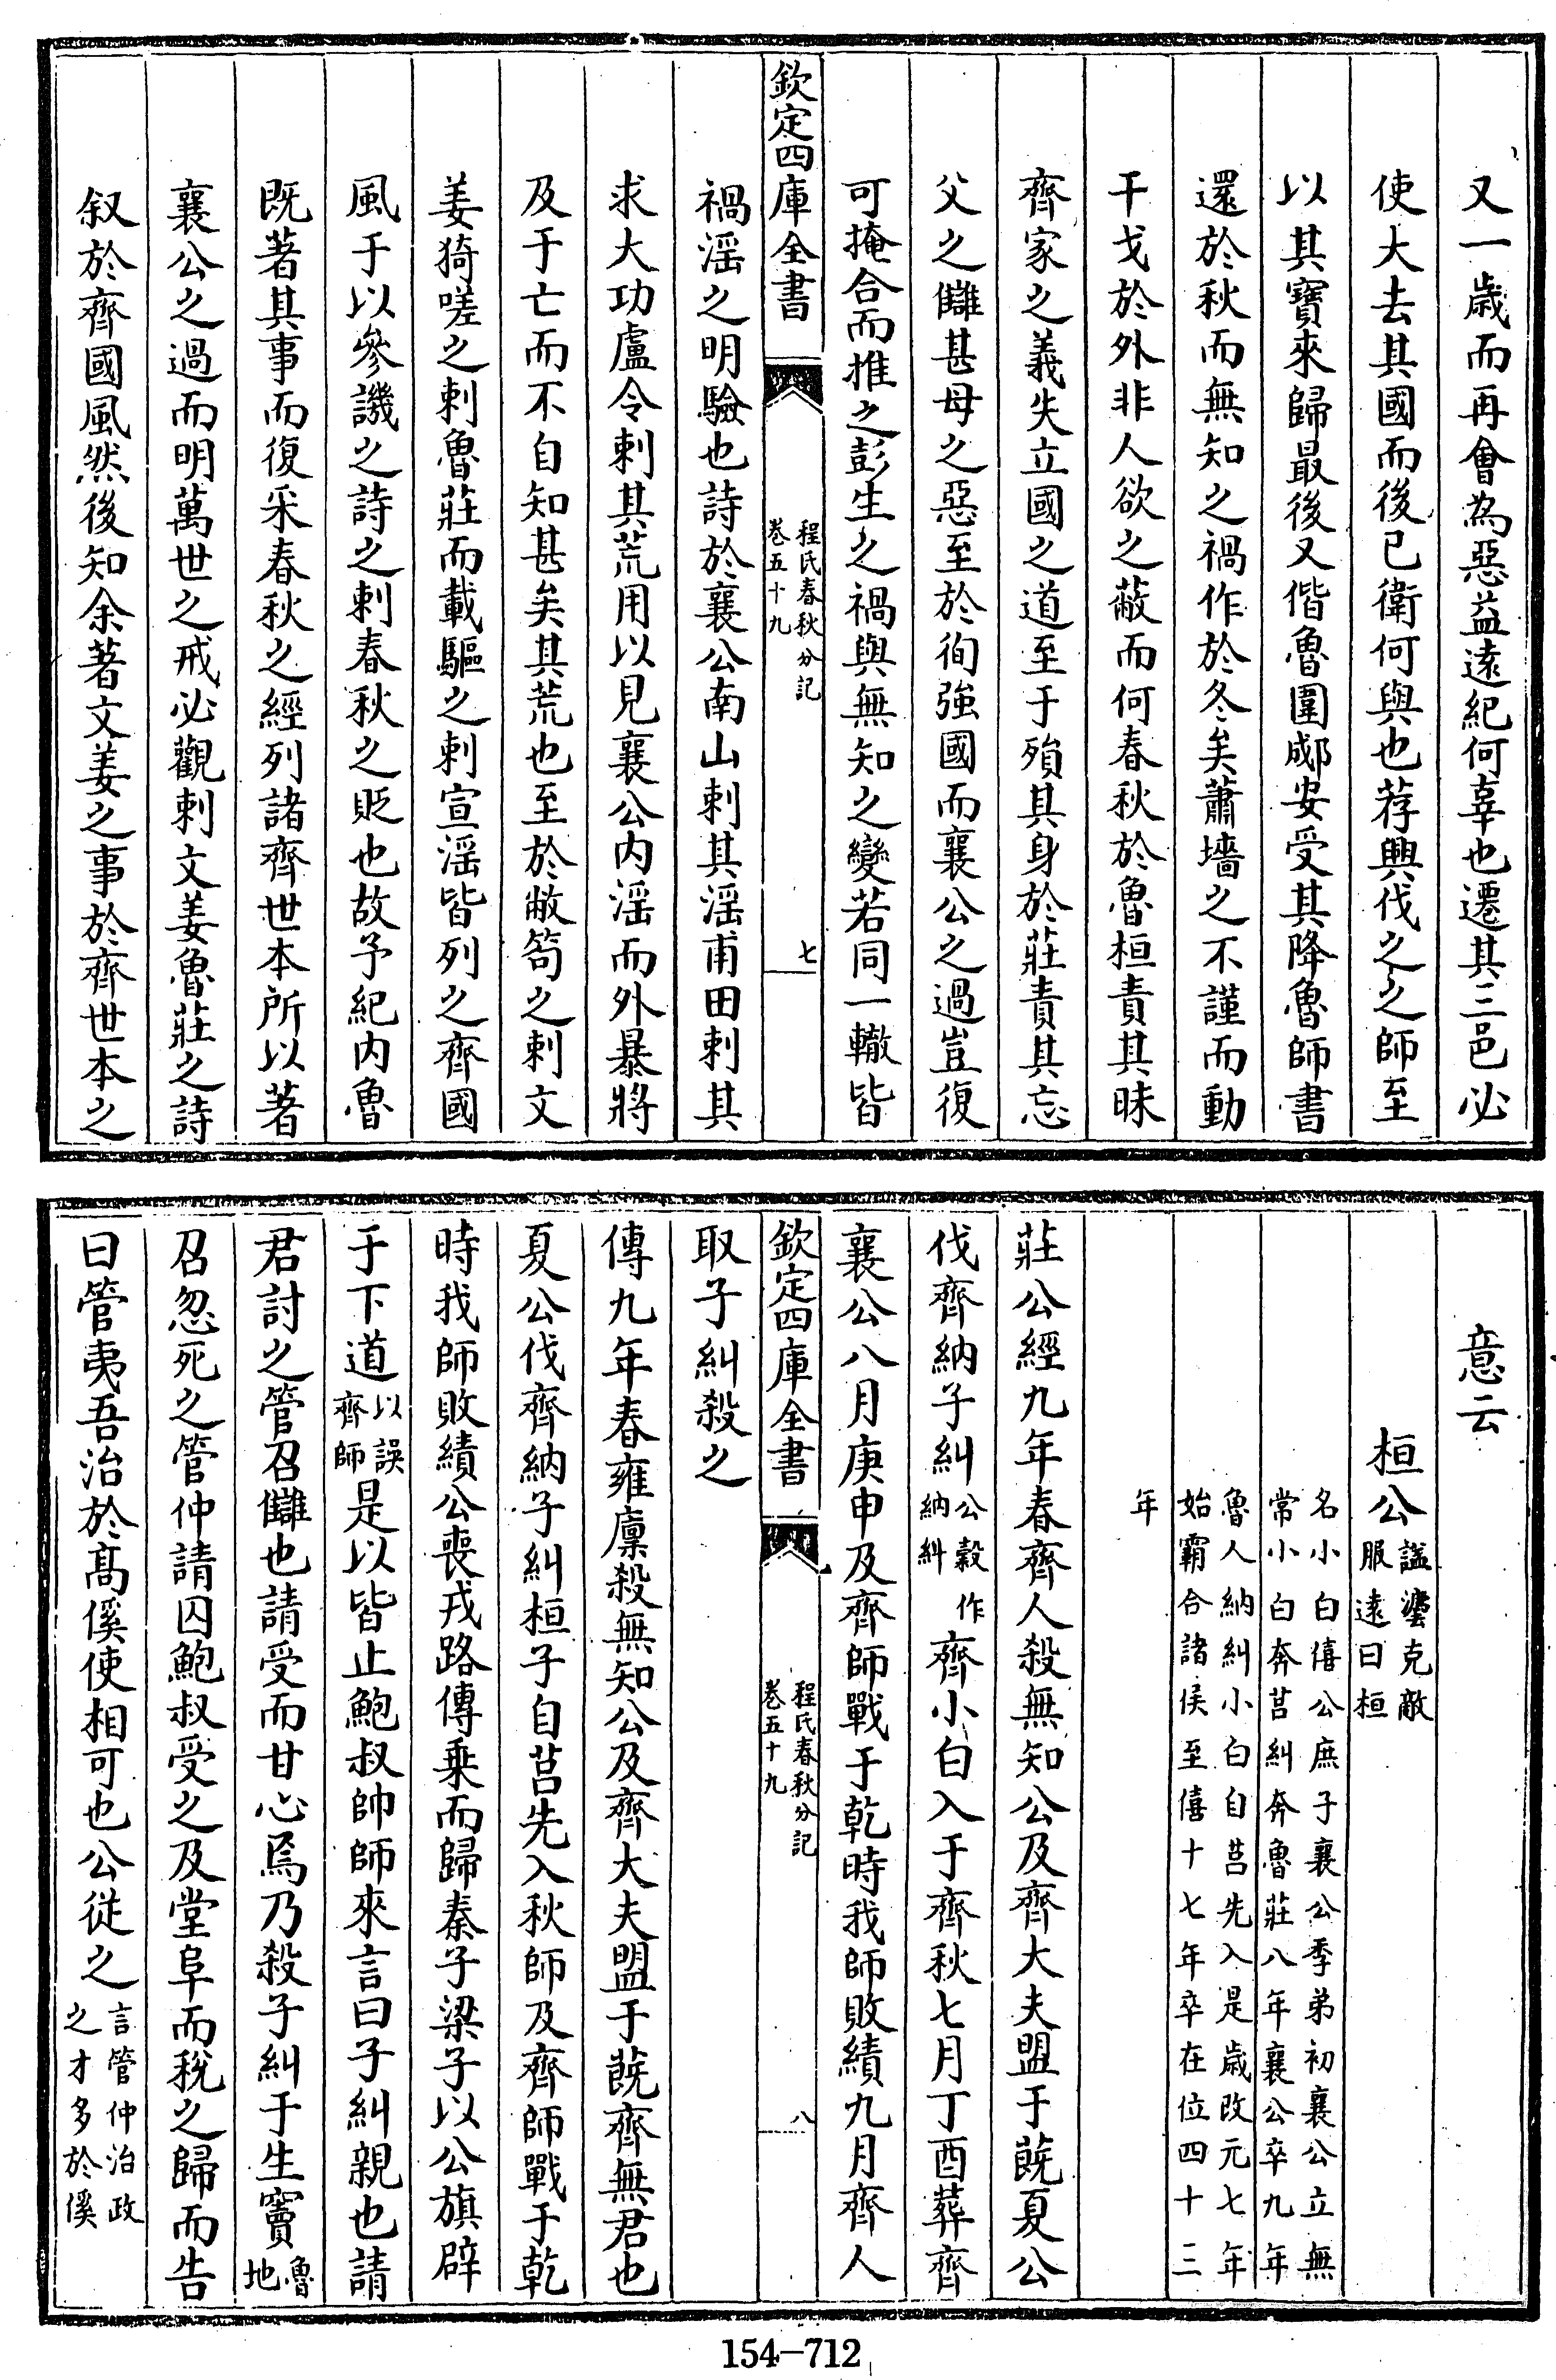 又一歲而再會為惡益遠紀何辜也遷其三邑必
使大去其國而後已衛何與也荐興伐之之師至
以其寶來歸最後又偕魯圍郕安受其降魯師書
還於秋而無知之禍作於冬矣蕭墻之不謹而動
干戈於外非人欲之蔽而何春秋於魯桓責其昧
齊家之義失立國之道至于殞其身於莊責其忘
父之讎甚母之惡至於徇強國而襄公之過豈復
可掩合而推之彭生之禍與無知之變若同一轍皆
欽定四庫全書
程氏春秋分記
卷五十九
七
禍淫之明驗也詩於襄公南山刺其淫甫田刺其
求大功盧令刺其荒用以見襄公内淫而外暴將
及于亡而不自知甚矣其荒也至於敝笱之刺文
姜猗嗟之刺魯莊而載驅之刺宣淫皆列之齊國
風于以參譏之詩之刺春秋之貶也故予紀内魯
既著其事而復采春秋之經列諸齊世本所以著
襄公之過而明萬世之戒必觀刺文姜魯莊之詩
叙於齊國風然後知余著文姜之事於齊世本之
意云
桓公諡灋克敵
服遠曰桓
名小白僖公庶子襄公季弟初襄公立無
常小白奔莒糾奔魯莊八年襄公卒九年
魯人納糾小白自莒先入是歲改元七年
始霸合諸侯至僖十七年卒在位四十三
年
莊公經九年春齊人殺無知公及齊大夫盟于蔇夏公
伐齊納子糾公穀作
納糾齊小白入于齊秋七月丁酉葬齊
襄公八月庚申及齊師戰于乾時我師敗績九月齊人
欽定四庫全書
程氏春秋分記
卷五十九
八
取子糾殺之
傳九年春雍廩殺無知公及齊大夫盟于蔇齊無君也
夏公伐齊納子糾桓子自莒先入秋師及齊師戰于乾
時我師敗績公喪戎路傳乗而歸秦子梁子以公旗辟
于下道以誤
齊師是以皆止鮑叔帥師來言曰子糾親也請
君討之管召讎也請受而甘心焉乃殺子糾于生竇魯
地
召忽死之管仲請囚鮑叔受之及堂阜而稅之歸而告
曰管夷吾治於髙傒使相可也公從之言管仲治政
之才多於傒
154-712